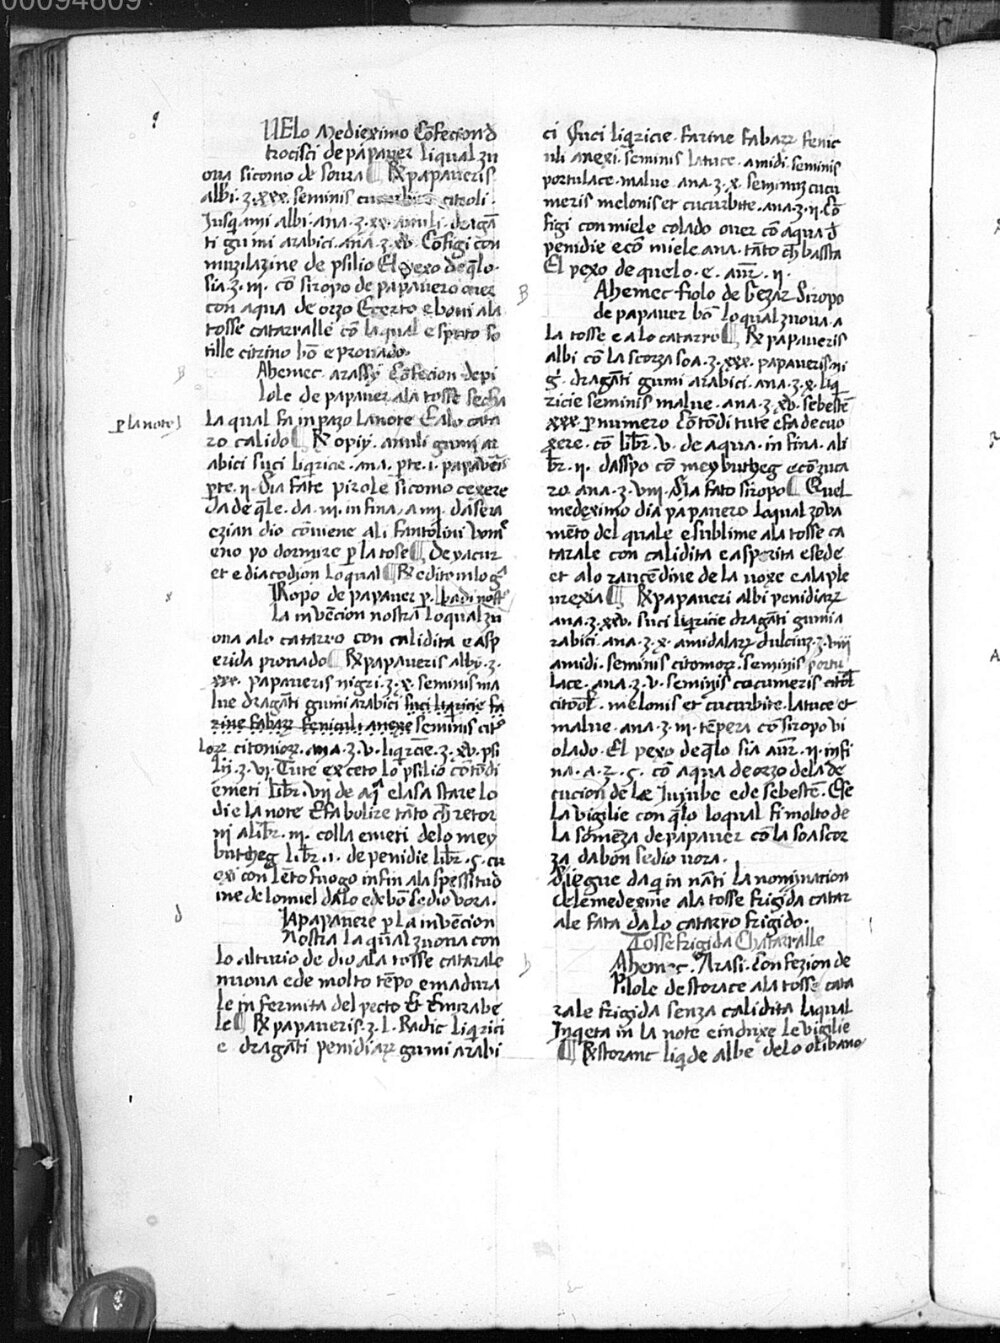 00094609
UElo Medieximo Cōfecion d
trocisci de papauer liqual zu
oua sicomo de soura ¶ ℞ papaueris
albi .ʒ. xxx. seminis citroli.
Jusqami albi. ana .ʒ. xx. amili. dragā
ti gumi arabici. ana .ʒ. xv. Cōfigi con
muzilazine de psilio El pexo de q̄lo.
sia .ʒ. iii. cō siropo de papauero ouer
con aqua de orzo E certo e boni ala
tosse catarralle cō laqual e sputo so
tille citrino bō e prouado.
Ahemec. arassy Cōfecion de pi
lole de papauer ala tosse secha
La qual fa in pazo la note E alo cata
ro calido ¶ ℞ opiy. amili gumi ar
abici suci liqricie. ana. pte. i. papaueris
pte. ii. Sia fate pirole sicomo cexere
da de q̄le. da. iii. in fina. a iiii. da sera
ezian dio cōuiene ali fantolini
eno po dormire p la tose ¶ De yacur
et e diacodion loqual ¶ ℞
p la note
IRopo de papauer p.
La in vencion nostra loqual zu
oua alo catarro con calidita e asp
erida prouado ¶ ℞ papaueris albi .ʒ.
xxx. papaueris nigri .ʒ. x. seminis ma
lue dragāti gumi arabici suci liqricie fa
rine fabarꝝ feniculi anexe seminis citͦ
lorꝝ citoniorꝝ. ana .ʒ. v. liqrcie .ʒ. xv. psi
lij .ʒ. vi. Tute exceto lo psilio cōtōdi
emeti libr. vij de aq elasa stare lo
di e la note E fa bulire tāto ch̄ retor
nj a libr. iii. colla emeti delo mey
butheg libr. i. de penidie libr. s. cu
oxi con lēto fuogo infin ala spessitud
ine de lomiel dalo ede bō sedio vora.
Iapapauere p la invencion
Nostra La qual zuoua con
lo alturio de dio ala tosse catarale
nuoua ede molto tēpo emadura
le in fermita del pecto Et Emirabe
le ¶ ℞ papaueris .ʒ. L. Radic Liqrici
e dragāti penidiarꝝ gumi arabi
ci Suci liqricie. farine fabarꝝ fenic
uli anexi. seminis latuce. amidi. seminis
portulace. malue. ana .ʒ. x. seminis cucu
meris melonis et cucurbite. ana .ʒ. ii. Cō
figi con miele colado ouer cō aqua d
penidie e cō miele ana. tāto ch̄ bassta
El pexo de quelo. e. aur̄. ii.
Ahemec fiolo de Gezar Siropo
de papauer bō loqual zuoua a
La tosse e alo catarro ¶ ℞ papaueris
albi cō la scorza soa .ʒ. xxx. papaueris ni
g. dragāti gumi arabici. ana .ʒ. x. liq
ricie seminis malue. ana .ʒ. xv. sebestē
xxx. p numero Cōtōdi tute efa de cuo
xere. cō libr̄. v. de aqua. in fina. ali
br̄. ii. dasspo cō mey butheg ecō zuca
ro. ana .ʒ. viii. Sia fato siropo ¶ Quel
medeximo dia papauero Loqual zoua
mēto del quale e sublime ala tosse ca
tarale con calidita e asperita e sede
et alo rancēdine de la voxe e ala ple
urexia ¶ ℞ papaueri albi penidiarꝝ
ana .ʒ. xxv. suci liqricie dragāti gumi a
rabici. ana .ʒ. x. amidalarꝝ dulciuʒ .ʒ. viii
amidi. seminis citomorꝝ. seminis portu
lace. ana .ʒ. v. seminis cucumeris citōl
citrol. melonis et cucurbite. latuce et
malue. ana .ʒ. iii. tēpera cō siropo vi
olado. El pexo de q̄lo sia aur̄. ii. infi
na. a. 2. s. cō aqua de orzo dela de
cucion de Le Jujube ede sebestē. Ese
La vigilie con q̄lo loqual fi molto de
La somēza de papauer cō la soa scor
za da bon sedio vora.
Siegue da q in nāti La nominacion
dele medexine ala tosse frigida catar
ale fata da lo catarro frigido.
Tosse frigida Chatarralle
Ahemec. Arasi. Confezion de
Pilole de storace ala tosse cata
rale frigida senza calidita Laqual
Inqeta in la note e indrixe le vigilie
¶ ℞ storanc liqide albe delo olibano